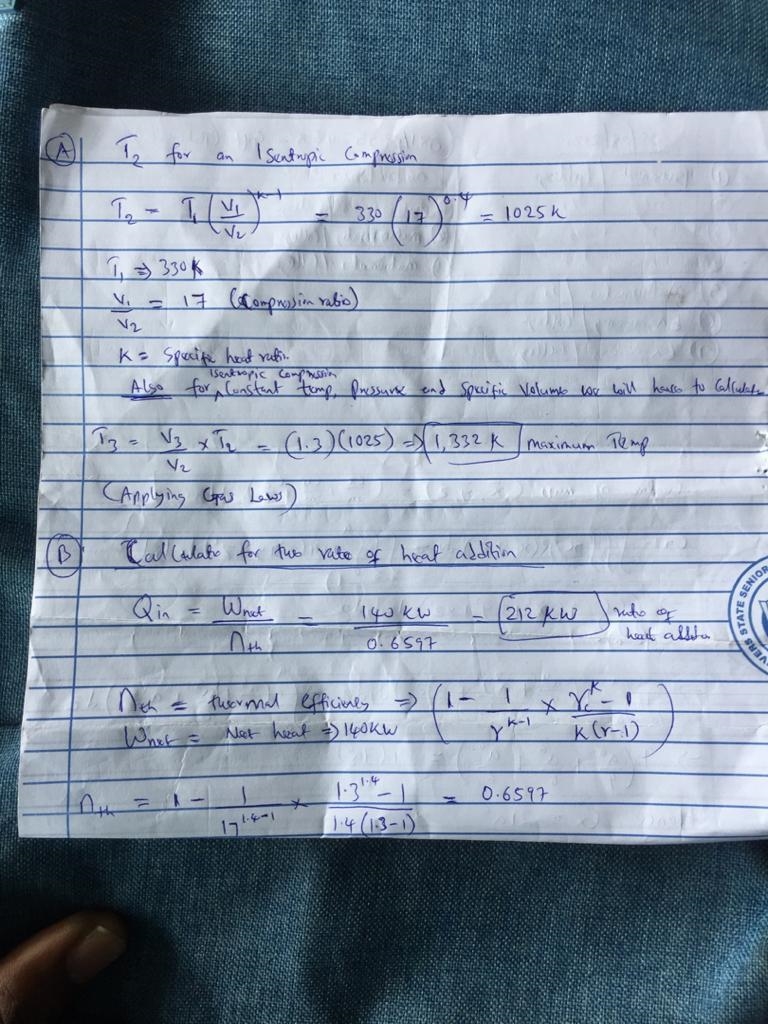 A T₂ for an Isentropic Compression
T₂ = T₁ (V₁/V₂)^(k-1) = 330 (17)^0.4 = 1025K
T₁ ⇒ 330K
V₁/V₂ = 17 (Compression ratio)
K = Specific heat ratio.
Isentropic compression
Also for Constant temp, Pressure and Specific Volume we will have to Calculate
T₃ = V₃/V₂ × T₂ = (1.3)(1025) ⇒ 1,332 K maximum Temp
(Applying Gas Laws)
B Calculate for the rate of heat addition
Qin = Wnet/nth = 140 KW/0.6597 = 212 KW rate of
heat addition
nth = thermal efficiency ⇒ (1 - 1/r^(k-1) × (r꜀^k - 1)/(k(r-1)))
Wnet = Net heat ⇒ 140KW
nth = 1 - 1/17^(1.4-1) × (1.3^1.4 - 1)/(1.4(1.3-1)) = 0.6597
STATE SENIOR